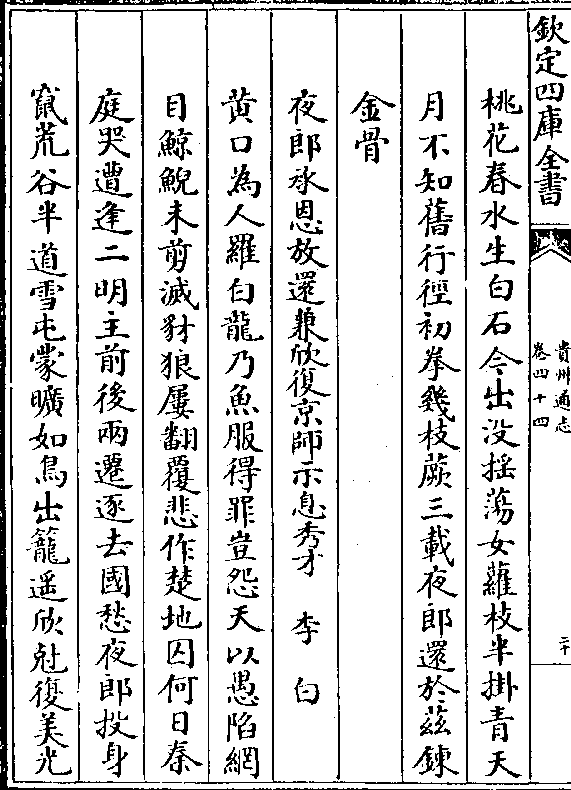 欽定四庫全書
貴州通志
卷四十四
二十
桃花春水生白石今出没揺蕩女蘿枝半掛青天
月不知舊行徑初拳幾枝蕨三載夜郎還於兹鍊
金骨
夜郎承恩放還兼欣復京師示息秀才 李白
黄口為人羅白龍乃魚服得罪豈怨天以愚陷網
目鯨鯢未剪滅豺狼屢翻覆悲作楚地囚何日秦
庭哭遭逢二明主前後兩遷逐去國愁夜郎投身
竄荒谷半道雪屯蒙曠如鳥出籠遥欣尅復美光